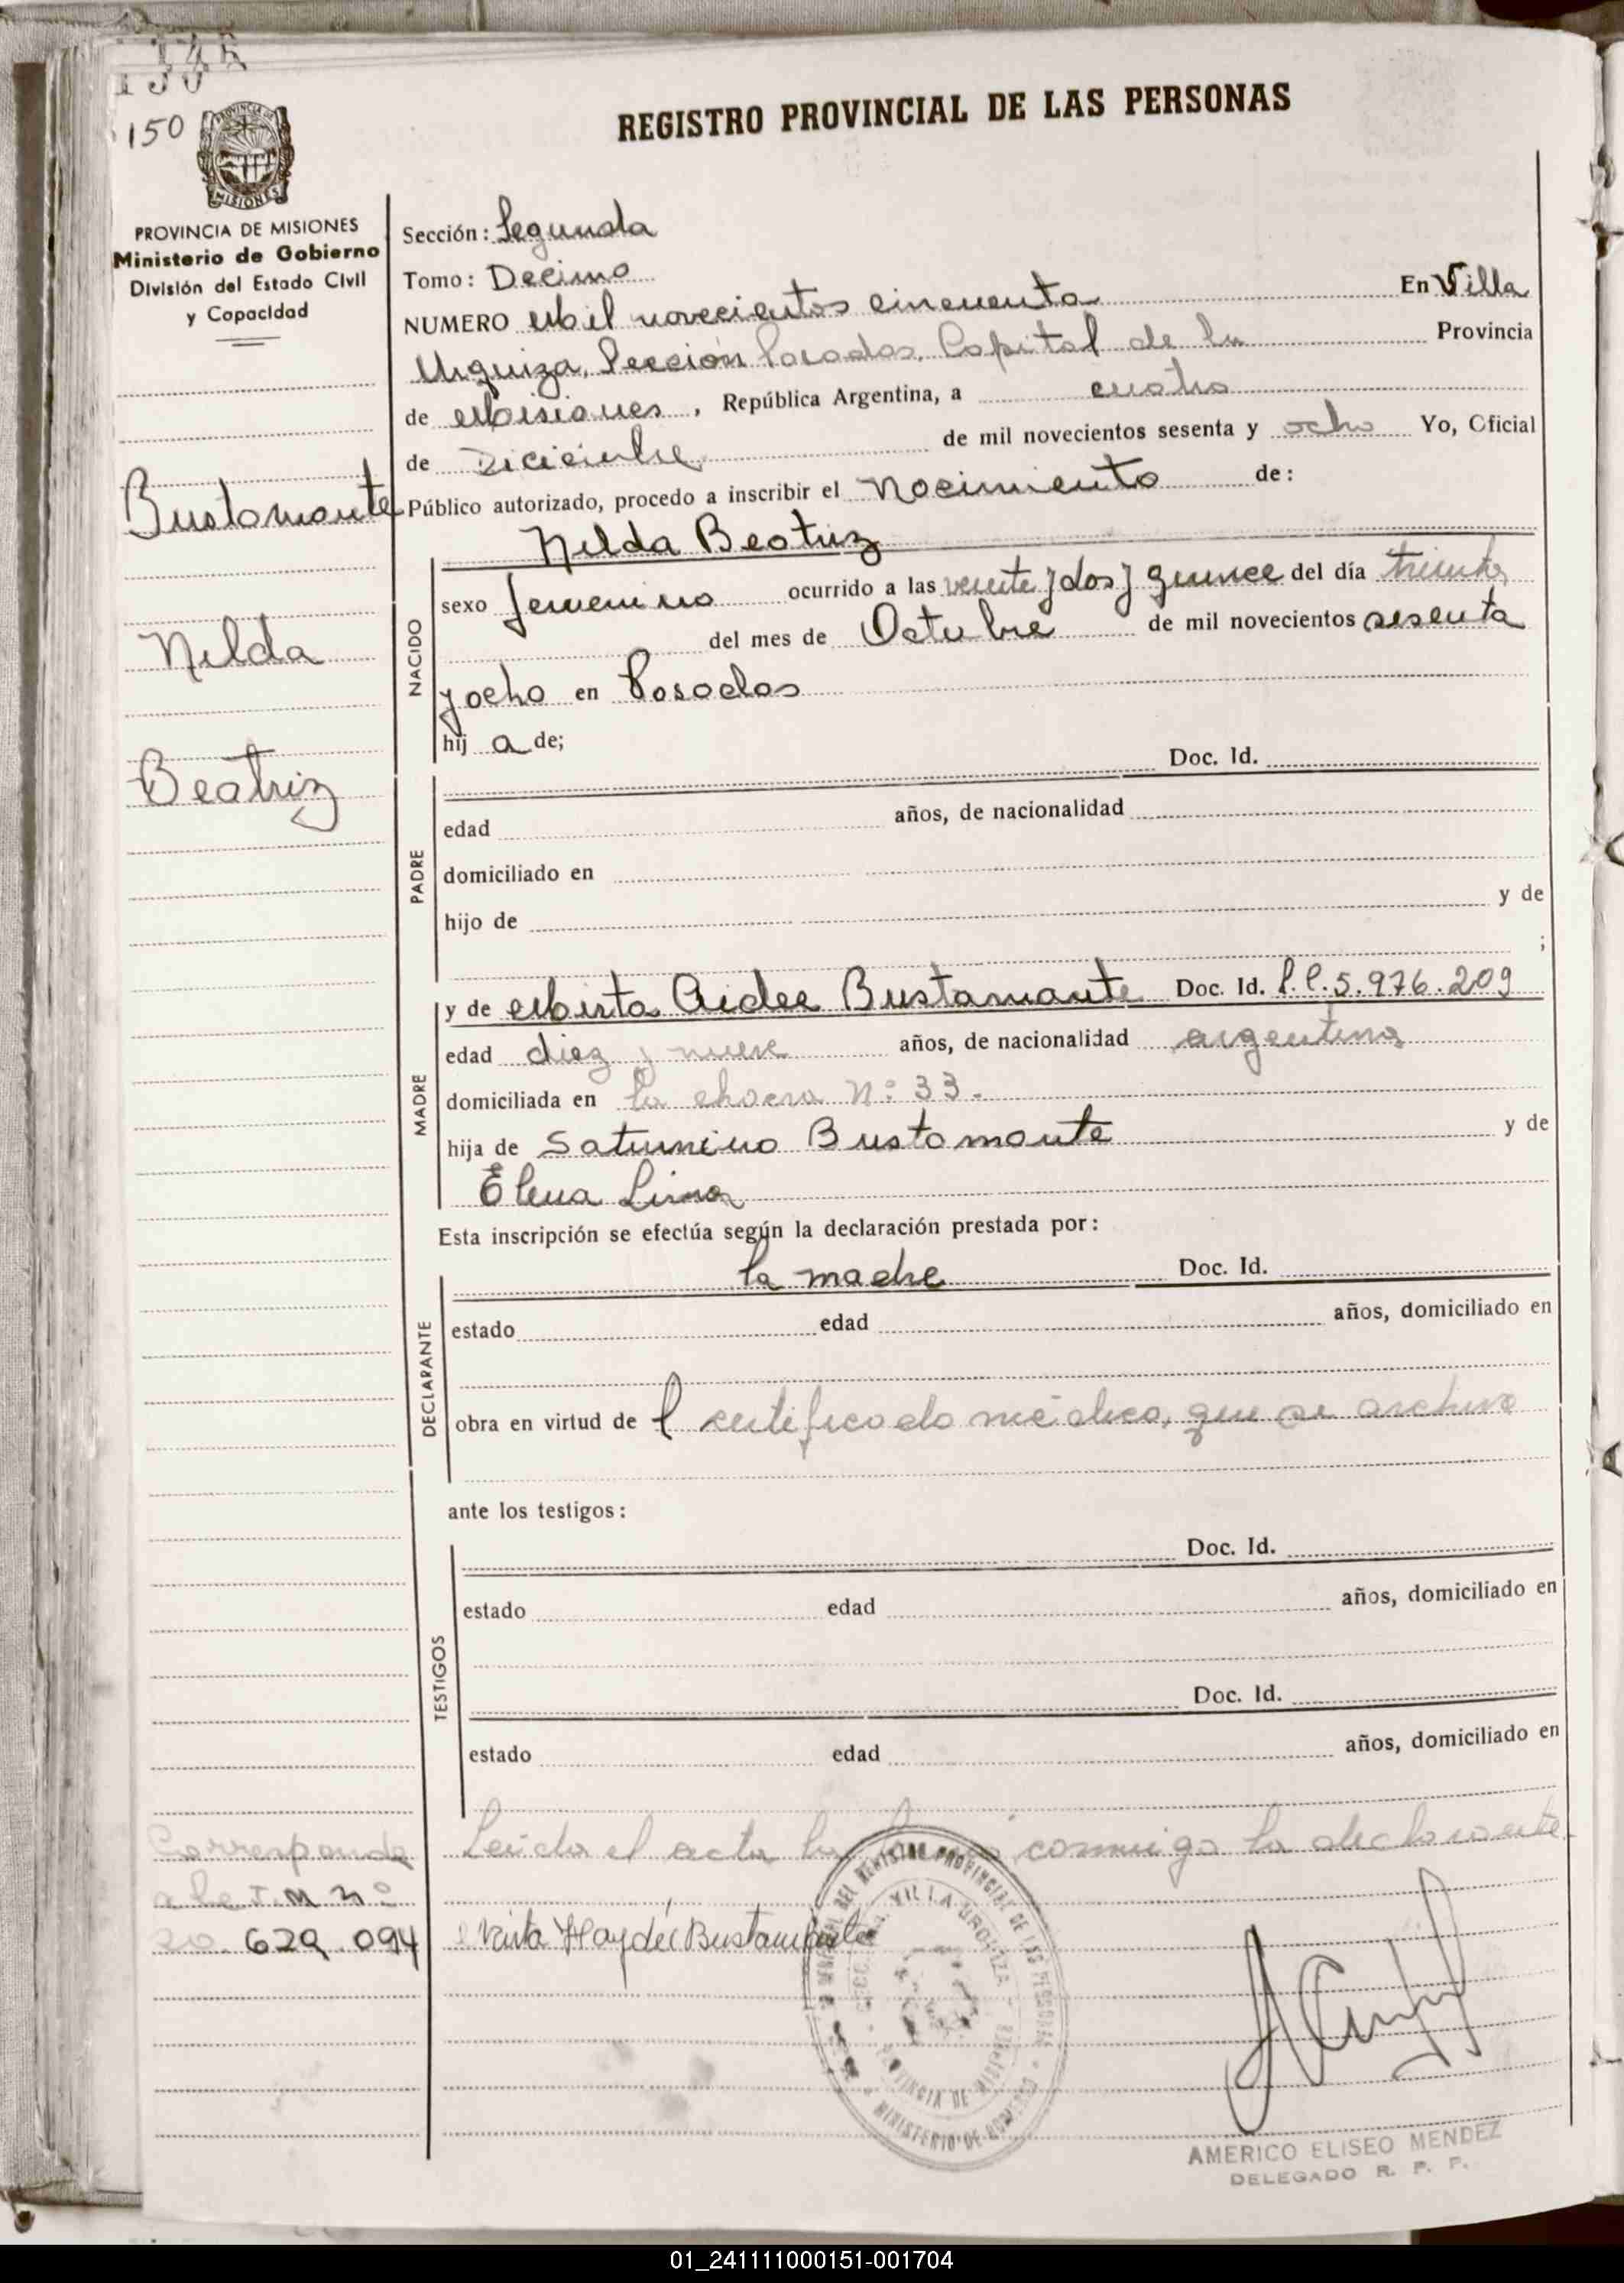 150
REGISTRO PROVINCIAL DE LAS PERSONAS
MISIONES
PROVINCIA DE MISIONES
Ministerio de Gobierno
División del Estado Civil
y Capacidad
Bustamante
Nelda
Beatriz
Sección: Segunda
Tomo: Decimo
NUMERO Mil novecientos cincuenta En Villa
Urquiza, Sección Posadas, Capital de la Provincia
de Misiones, República Argentina, a cuatro
de Diciembre de mil novecientos sesenta y ocho Yo, Oficial
Público autorizado, procedo a inscribir el Nacimiento de:
NACIDO
Nelda Beatriz
sexo femenino ocurrido a las veinte y dos y quince del día treinta
del mes de Octubre de mil novecientos sesenta
y ocho en Posadas
hij a de;
PADRE
Doc. Id.
edad años, de nacionalidad
domiciliado en
hijo de y de
;
MADRE
y de Mirta Aidee Bustamante Doc. Id. L.C. 5.976.209
edad diez y nueve años, de nacionalidad argentina
domiciliada en la chacra Nº 33.
hija de Saturnino Bustamante y de
Elena Lima
Esta inscripción se efectúa según la declaración prestada por:
DECLARANTE
la madre Doc. Id.
estado edad años, domiciliado en
obra en virtud de l certificado médico, que se archiva
ante los testigos:
TESTIGOS
Doc. Id.
estado edad años, domiciliado en
Doc. Id.
estado edad años, domiciliado en
Leída el acta la conmigo la declarante.
Mirta Haydeé Bustamante
Corresponde
M nº
20.629.094
VILLA URQUIZA
PROVINCIA DE MISIONES
MINISTERIO DE GOBIERNO
AMERICO ELISEO MENDEZ
DELEGADO R. P. P.
01_241111000151-001704